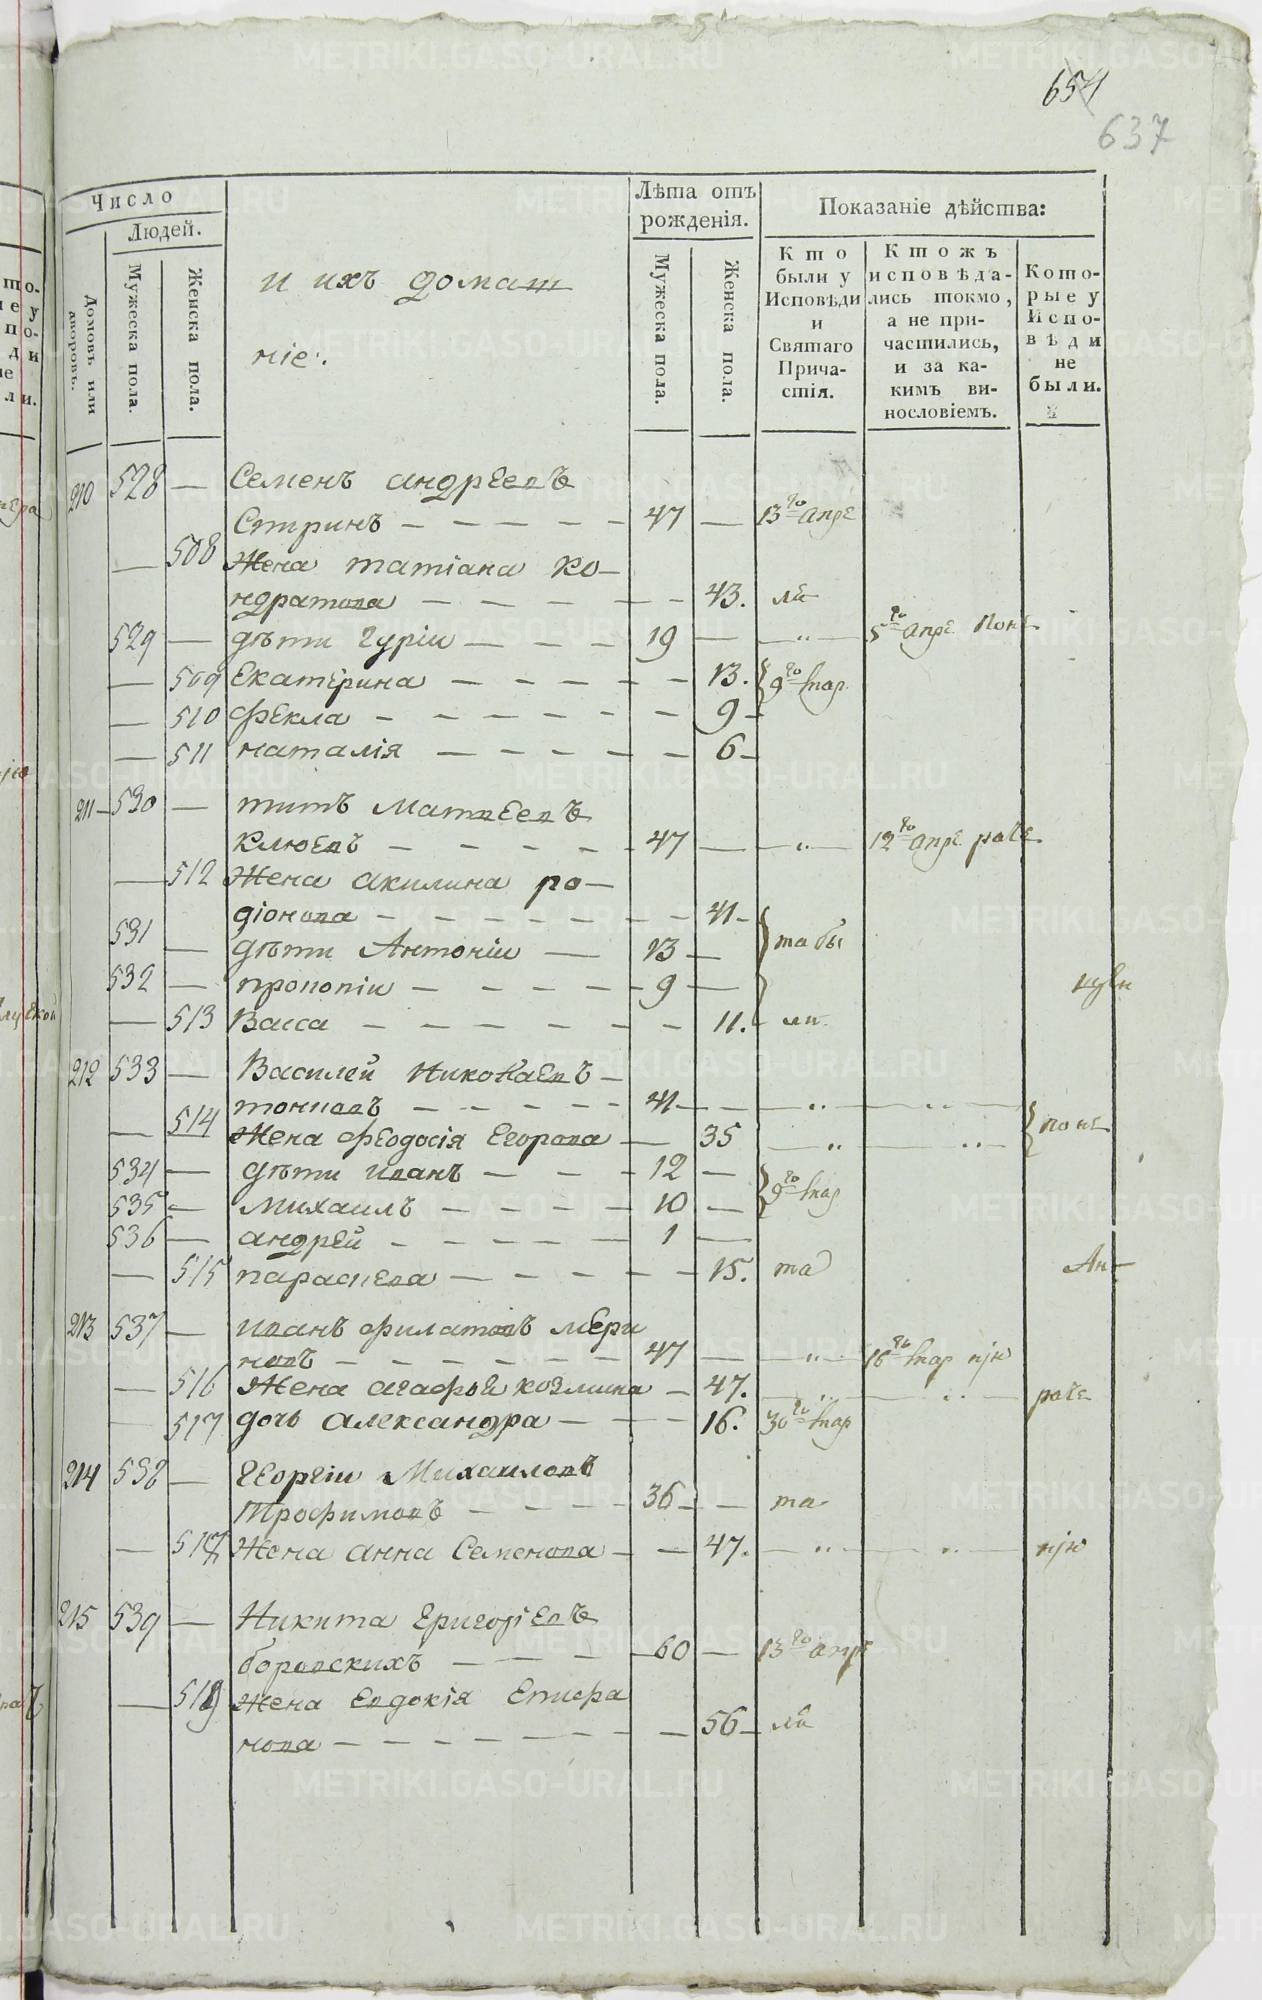 654
637
Число
Людей.
Домовъ или дворовъ.
Мужеска пола.
Женска пола.
и ихъ домаш
ніе:
Лѣта отъ рожденія.
Мужеска пола.
Женска пола.
Показаніе дѣйства:
Кто были у Исповѣди и Святаго Причастія.
Ктожъ исповѣдались токмо, а не причастились, и за какимъ винословіемъ.
Которые у Исповѣди не были.
210 528 — Семенъ андреевъ
Стринъ — 47 — 13го апре
— 508 Жена татіана ко-
ндратова — 43. ли
529 — дѣти гуріи — 19 — „ — 5го апре
— 509 Екатерина — 13. 9го мар
— 510 фекла — 9
— 511 наталія — 6
211 530 — титъ Матвеевъ
Клюевъ — 47 — „ — 12го апре
— 512 Жена акилина ро-
діонова — 41
531 — дѣти Антоніи — 13 — та бы
532 — прокопіи — 9 —
— 513 Васса — 11. ли
212 533 — Василей Николаевъ
тонковъ — 41 — „ — „
— 514 Жена феодосія Егорова — 35 — „ — „
534 — дѣти иванъ — 12 — 9го мар
535 — михаилъ — 10 —
536 — андрей — 1 —
— 515 параскева — 15. та
213 537 — иванъ филатовъ мери
новъ — 47 — „ — 16го мар
— 516 Жена агафья козмина — 47. — „ — „
— 517 дочь александра — 16. 30го мар
214 538 — георгіи Михаиловъ
Трофимовъ — 36 — та
— 518 Жена анна Семенова — 47. — „ — „
215 539 — Никита григорьевъ
боровскихъ — 60 — 13го апре
— 519 Жена Евдокія Епифа
нова — 56 — ли